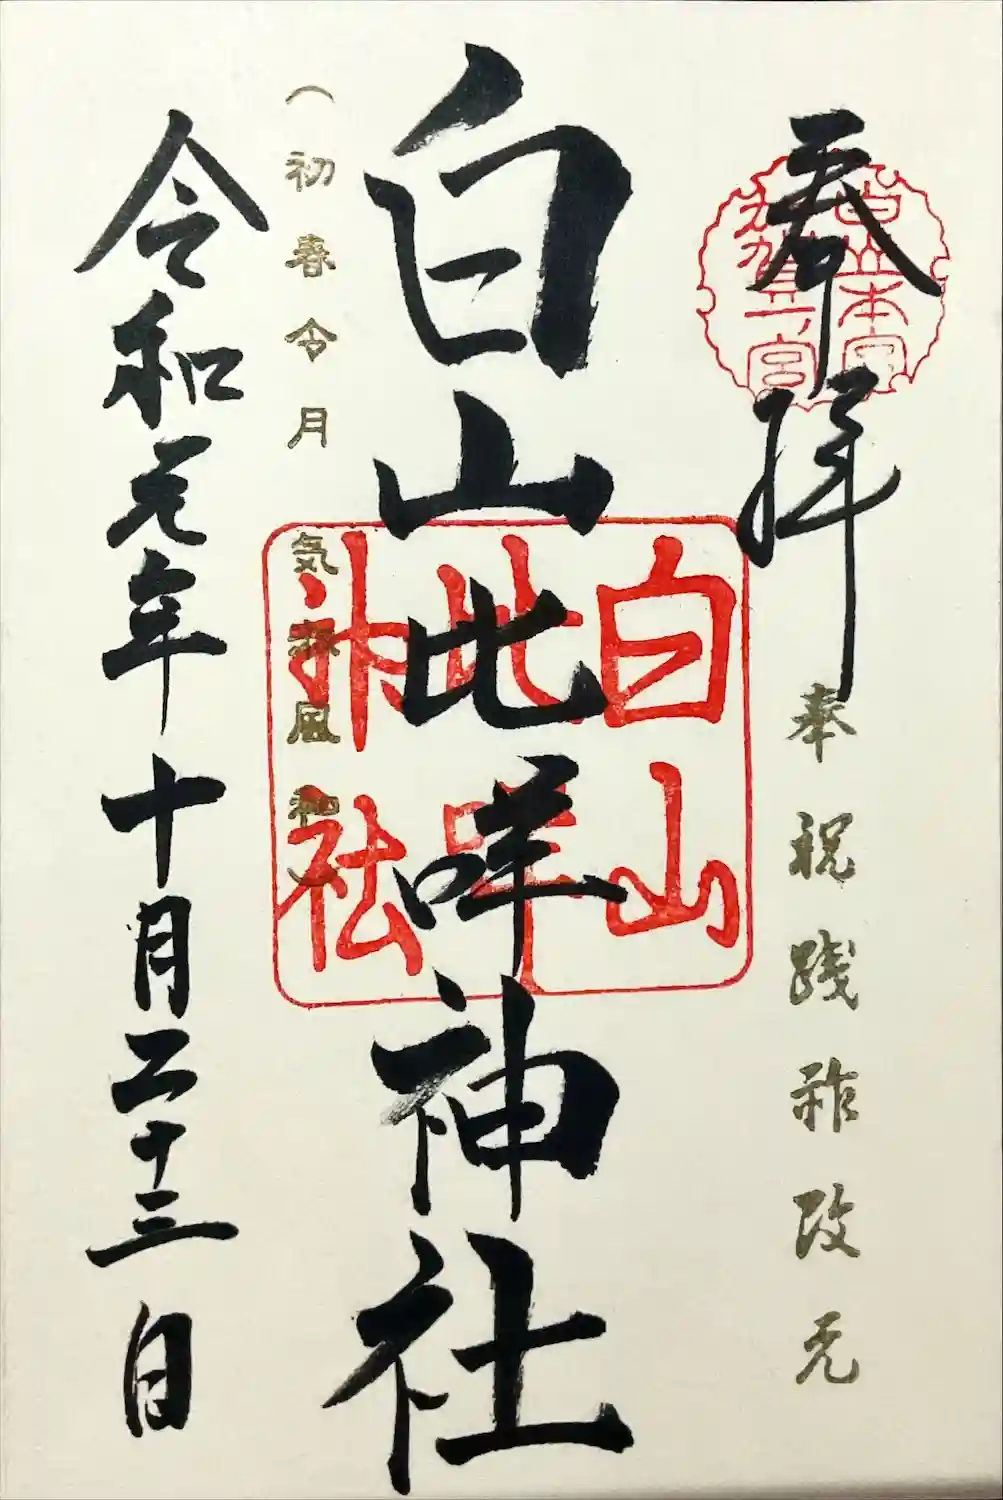 奉拝
白山本宮
加賀一ノ宮
奉祝践祚改元
白山比咩神社
白山
比咩
神社
（初春令月　気淑風和）
令和元年十月二十三日